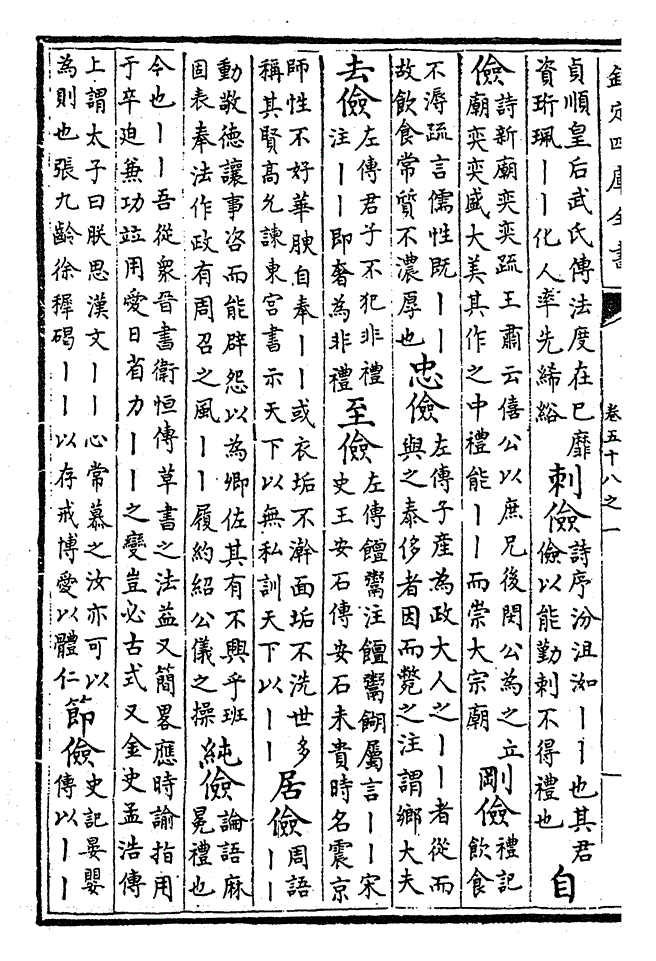 欽定四庫全書 卷五十八之一
貞順皇后武氏傳法度在已靡
資珩珮丨丨化人率先絺綌
刺儉
詩序汾沮洳丨丨也其君
儉以能勤刺不得禮也
自
儉
詩新廟奕奕疏王肅云僖公以庶兄後閔公為之立
廟奕奕盛大美其作之中禮能丨丨而崇大宗廟
剛儉
禮記
飲食
不溽疏言儒性既丨丨
故飲食常質不濃厚也
忠儉
左傳子產為政大人之丨丨者從而
與之泰侈者因而斃之注謂鄉大夫
去儉
左傳君子不犯非禮
注丨丨即奢為非禮
至儉
左傳饘鬻注饘鬻餬屬言丨丨宋
史王安石傳安石未貴時名震京
師性不好華腴自奉丨丨或衣垢不澣面垢不洗世多
稱其賢高允諫東宮書示天下以無私訓天下以丨丨
居儉
周語
丨丨
動敬德讓事咨而能辟怨以為卿佐其有不興乎班
固表奉法作政有周召之風丨丨履約紹公儀之操
純儉
論語麻
冕禮也
今也丨丨吾從衆晉書衛恒傳草書之法葢又簡畧應時諭指用
于卒迫兼功竝用愛日省力丨丨之變豈必古式又金史孟浩傳
上謂太子曰朕思漢文丨丨心常慕之汝亦可以
為則也張九齡徐穉碣丨丨以存戒博愛以體仁
節儉
史記晏嬰
傳以丨丨